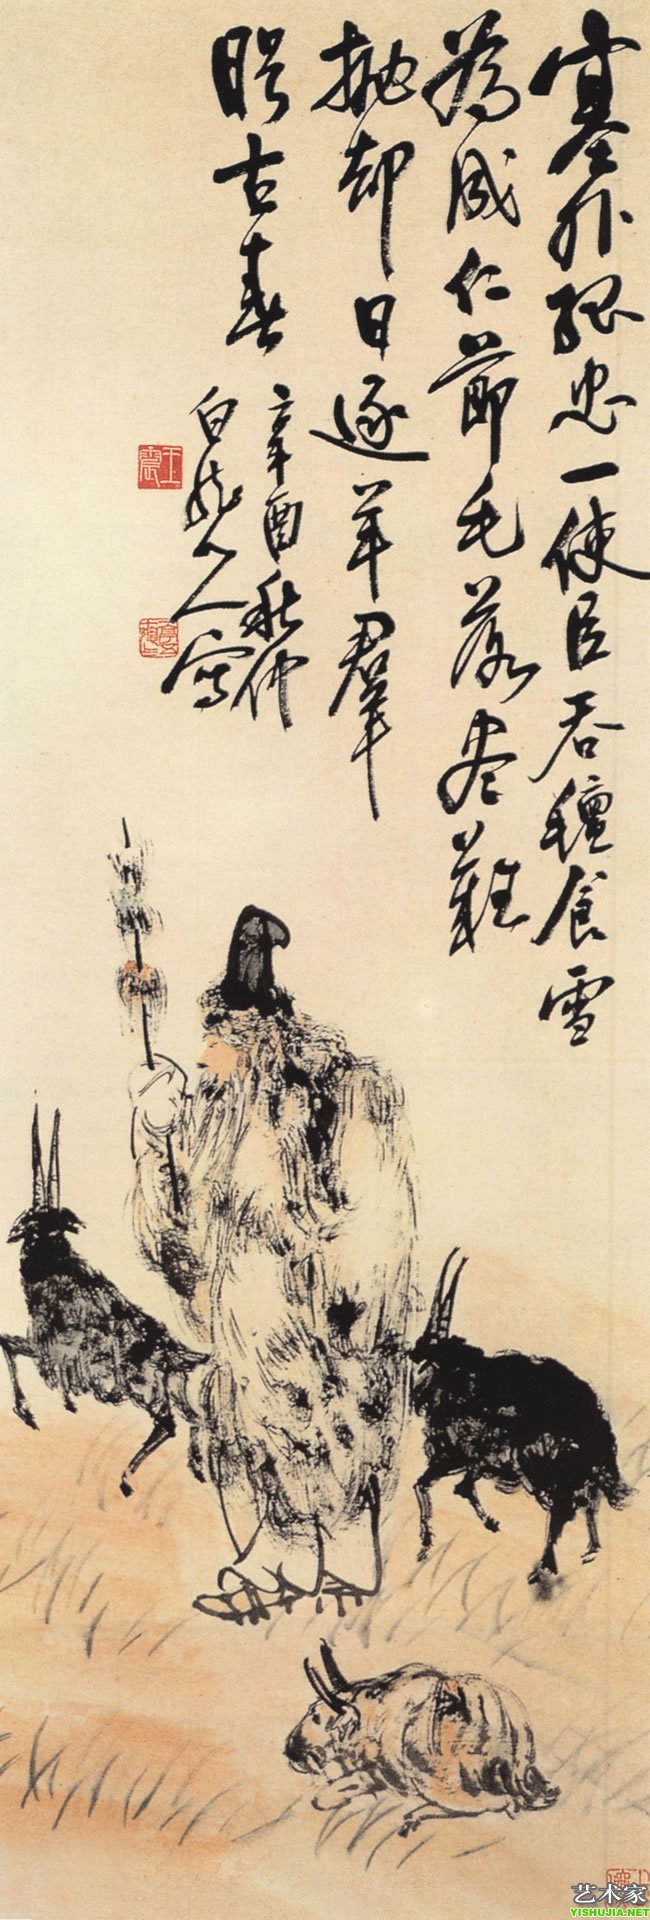 塞外孤忠一使臣吞氈食雪
為成仁節毛落盡難
抛却日逐羊羣
古春
辛酉秋仲
白龍山人寫
王震
艺术家
YISHUJIA.NET